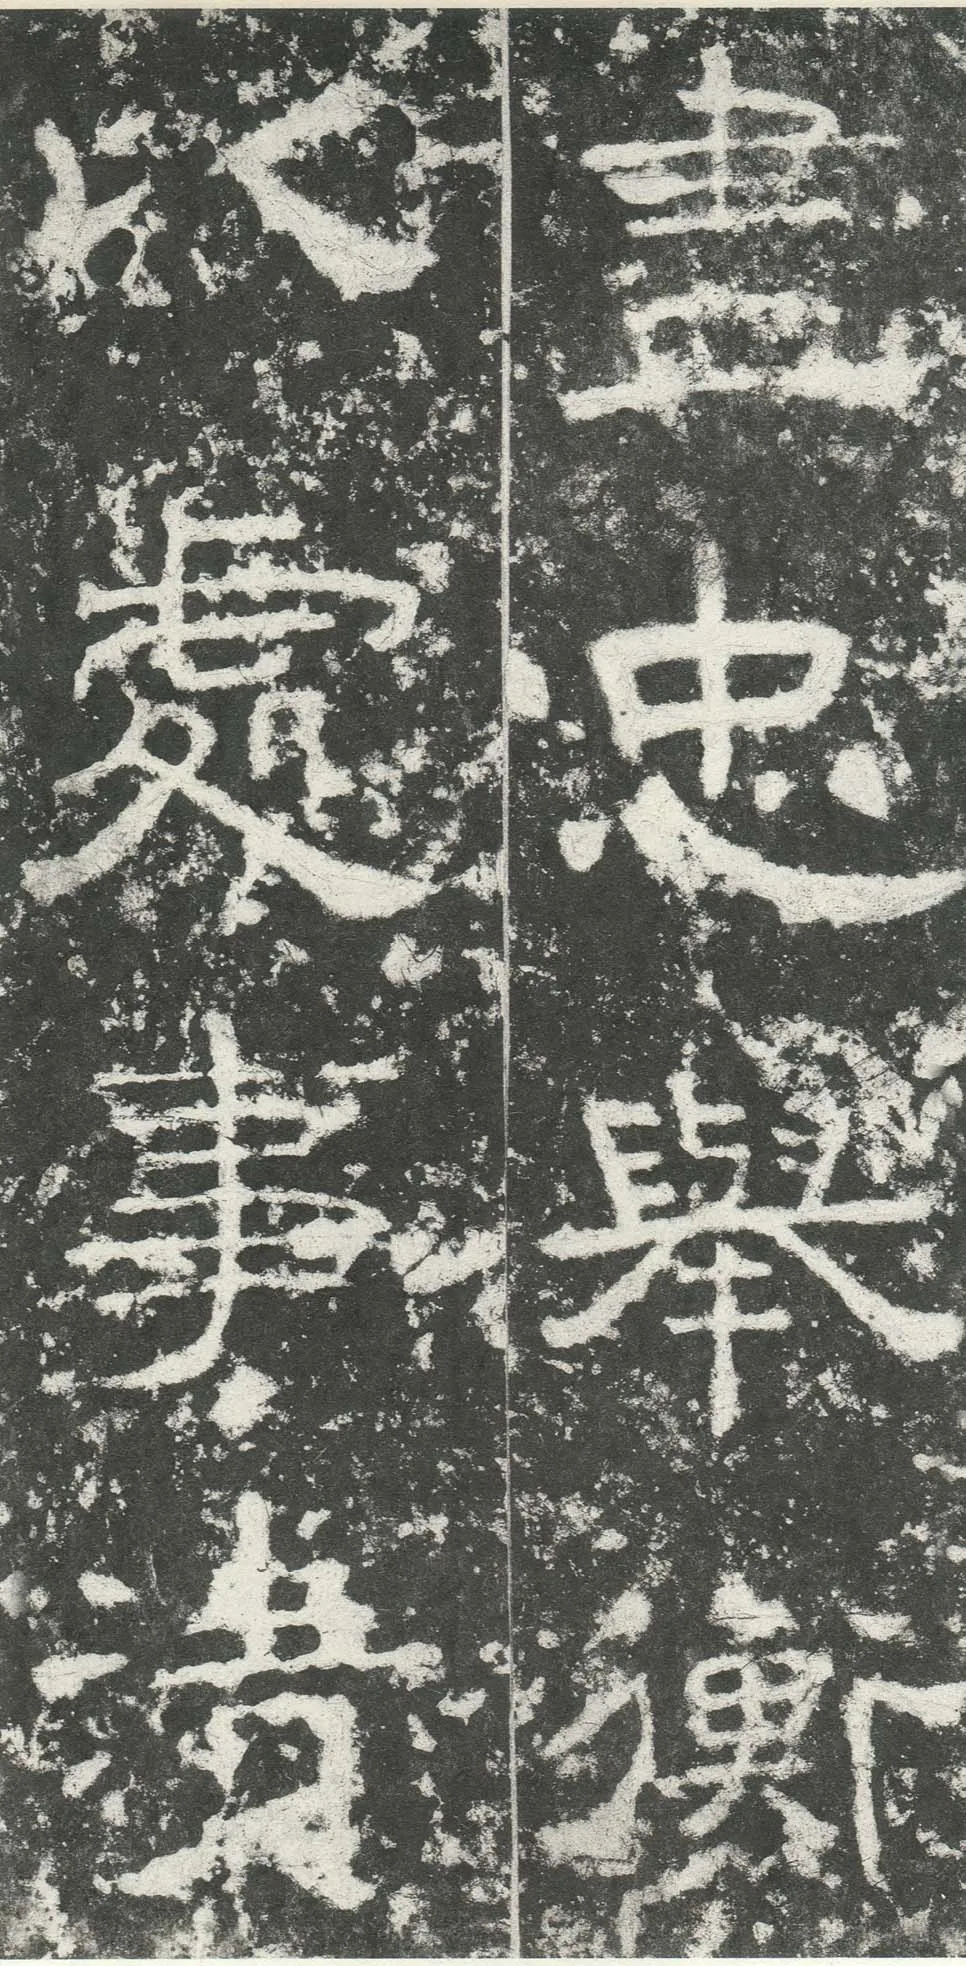 盡忠舉衡
以處事貴